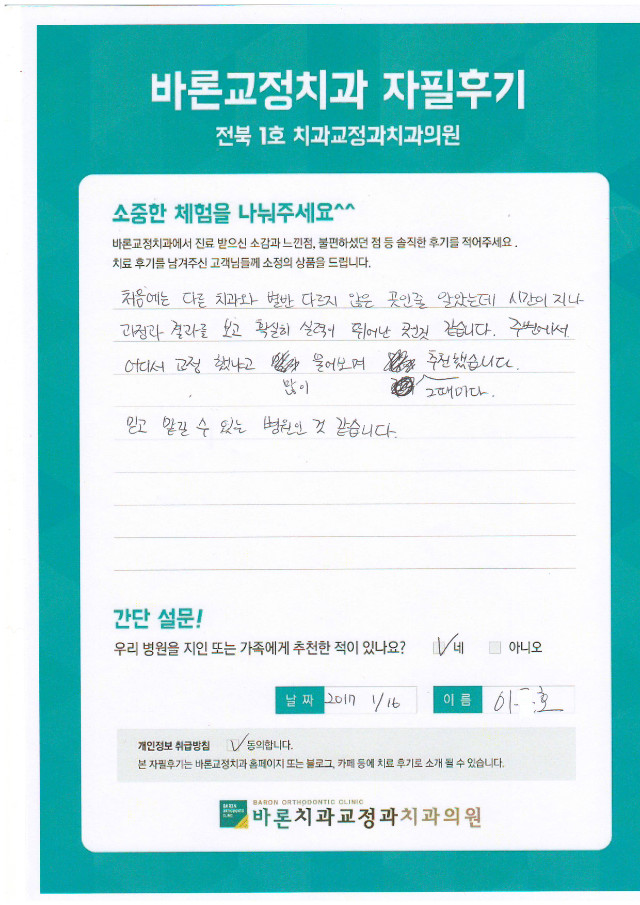 바른교정치과 자필후기
전북 1호 치과교정과치과의원
소중한 체험을 나눠주세요^^
바른교정치과에서 진료 받으신 소감과 느낀점, 불편하셨던 점 등 솔직한 후기를 적어주세요.
치료 후기를 남겨주신 고객님들께 소정의 상품을 드립니다.
처음에는 다른 치과와 별반 다르지 않은 곳인줄 알았는데 시간이 지나
과정과 결과를 보고 확실히 실력이 뛰어난 것 같습니다. 주변에서
어디서 교정 했냐고 물어보며 추천했습니다.
많이 그때마다.
믿고 맡길 수 있는 병원인 것 같습니다.
간단 설문!
우리 병원을 지인 또는 가족에게 추천한 적이 있나요? 네 아니오
날짜 2017 1/16 이름
개인정보 취급방침 동의합니다.
본 자필후기는 바론교정치과 홈페이지 또는 블로그, 카페 등에 치료 후기로 소개 될 수 있습니다.
BARON ORTHODONTIC CLINIC
바론치과교정과치과의원